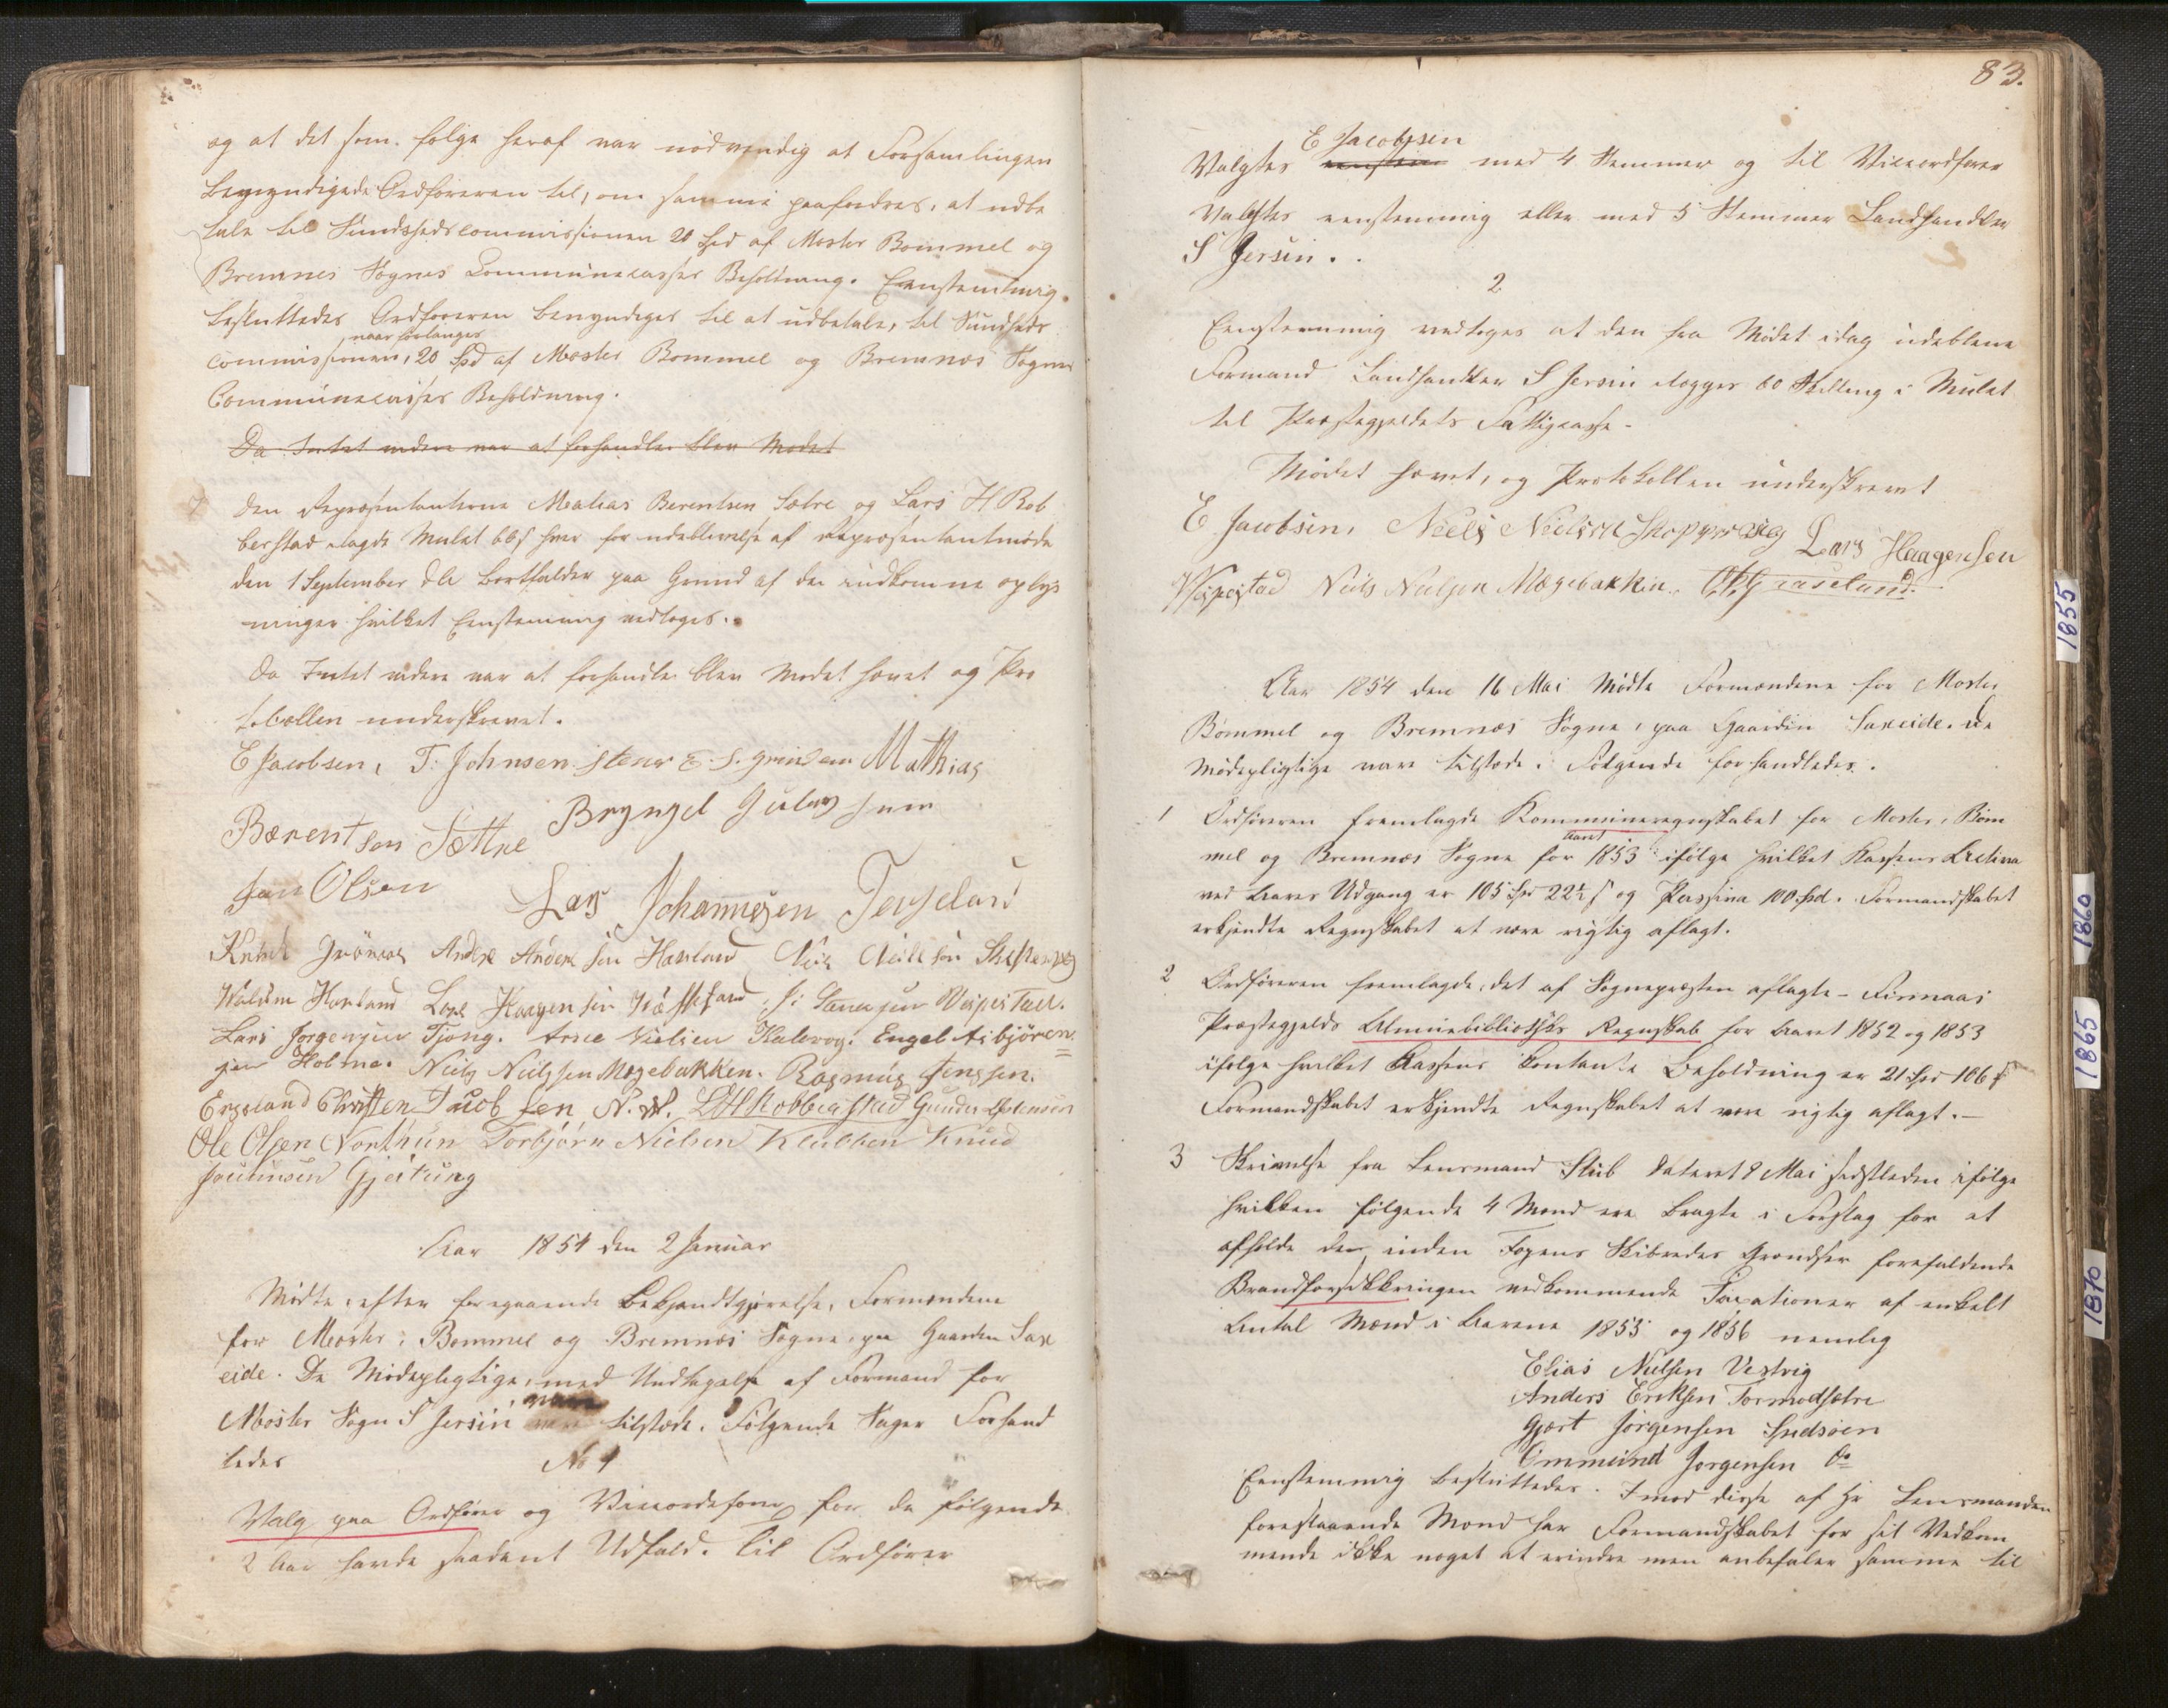 og at det som følge heraf var nødvendig at Forsamlingen
bemyndigede Ordføreren til, om samme paafordres, at udbe
tale til Sundhedscommissionen 20 Spd af Moster Bommel og
Bremnes Sognes Communecasses Beholdning. Eenstemmig
besluttedes Ordføreren bemyndiges til at udbetale, til Sundheds
naar forlanges
commissionen, 20 Spd af Moster Bommel og Bremnæs Sognes
Communecasses Beholdning.
Da Intet videre var at forhandle blev Mødet
7 Den Repræsentanterne Mathias Berentsen Sætre og Lars H Rob
berstad ilagde Mulct 66 s hver for udeblivelse af Repræsentantmøde
den 1 September d.A. bortfalder paa Grund af de indkomne oplys
ninger hvilket Eenstemmig vedtoges.
Da Intet videre var at forhandle blev Mødet hævet og Pro
tocollen underskrevet.
E Jacobsen, T. Johnsen Stenr E. S. Grindem Mathias
Bærentsen Sættre Bryngel Gulev
Jan Olsen Lars Johannesen Tengesdal
Knud Andre Andersen Havland Niels Nielsen
Wilum Havland Lars Haagensen Vespestad.
Lars Jørgensen Tjong. Arne Nielsen Kulevog. Engel Asbjören
sen Holme. Niels Nielssen Mogebakken. Rasmus Jenssen.
Engeland Christen Jacobsen N. N. LHRobberstad Gunder
Ole Olsen Northun Torbjörn Nielsen Klubben Knud
Gjeitung
Aar 1854 den 2 Januar
Mødte, efter foregaaende Bekjendtgjørelse, Formændene
for Moster, Bommel og Bremnæs Sogne, paa Gaarden Sax
eide. De Mødepligtige, med Undtagelse af Formand for
Moster Sogn S Jersin, vare tilstede. Følgende Sager Forhand
ledes No 1
Valg paa Ordfører og Viceordfører for de følgende
2 Aar havde saadant Udfald. Til Ordfører
83.
E Jacobsen
Valgtes med 4 Stemmer og til Viceordfører
valgtes eenstemmig eller med 5 Stemmer Landhandler
S Jersin.
2
Eenstemmig vedtoges at den fra Mødet idag udeblevne
Formand Landhandler S Jersin ilægges 60 Skilling i Mulct
til Præstegjeldets Fattigcasse.
Mødet hævet, og Protokollen underskrevet
E Jacobsen, Niels Nielsen Lars Haagensen
Vespestad Niels Nielsen Mogebakken.
Aar 1854 den 16 Mai Mødte Formændene for Moster
Bömmel og Bremnæs Sogne, paa Gaarden Saxeide. De
Mødepligtige vare tilstede. Følgende forhandledes.
1 Ordføreren fremlagde Kommuneregnskabet for Moster, Bøm
mel og Bremnæs Sogne for Aaret 1853 ifølge hvilket Kassens Activa
ved Aarets Udgang er 105 Spd 22½ s og Passiva 100 Spd. Formandskabet
erkjendte Regnskabet at være rigtig aflagt.
2 Ordføreren fremlagde, det af Sognepræsten aflagte Finnaas
Præstegjelds Almuebibliotheks Regnskab for Aaret 1852 og 1853
ifølge hvilket Kassens kontante Beholdning er 21 Spd 106 s
Formandskabet erkjendte Regnskabet at være rigtig aflagt.
3 Skrivelse fra Lensmand Stub dateret 8 Mai sidstleden ifølge
hvilken følgende 4 Mænd ere bragte i Forslag for at
afholde de, inden Fogens Skibredes Grændser forefaldende
Brandforsikkringen vedkommende Taxationer af enkelt
Antal Mænd i Aarene 1855 og 1856 nemlig
Elias Nielsen Vestvig
Anders Eriksen Tormodsætre
Gjert Jørgensen Indsöen
Ommund Jørgensen do
Eenstemmig besluttedes. Imod disse af Hr Lensmanden
foreslaaende Mænd har Formandskabet for sit Vedkom
mende ikke noget at erindre men anbefaler samme til
1855
1860
1865
1870